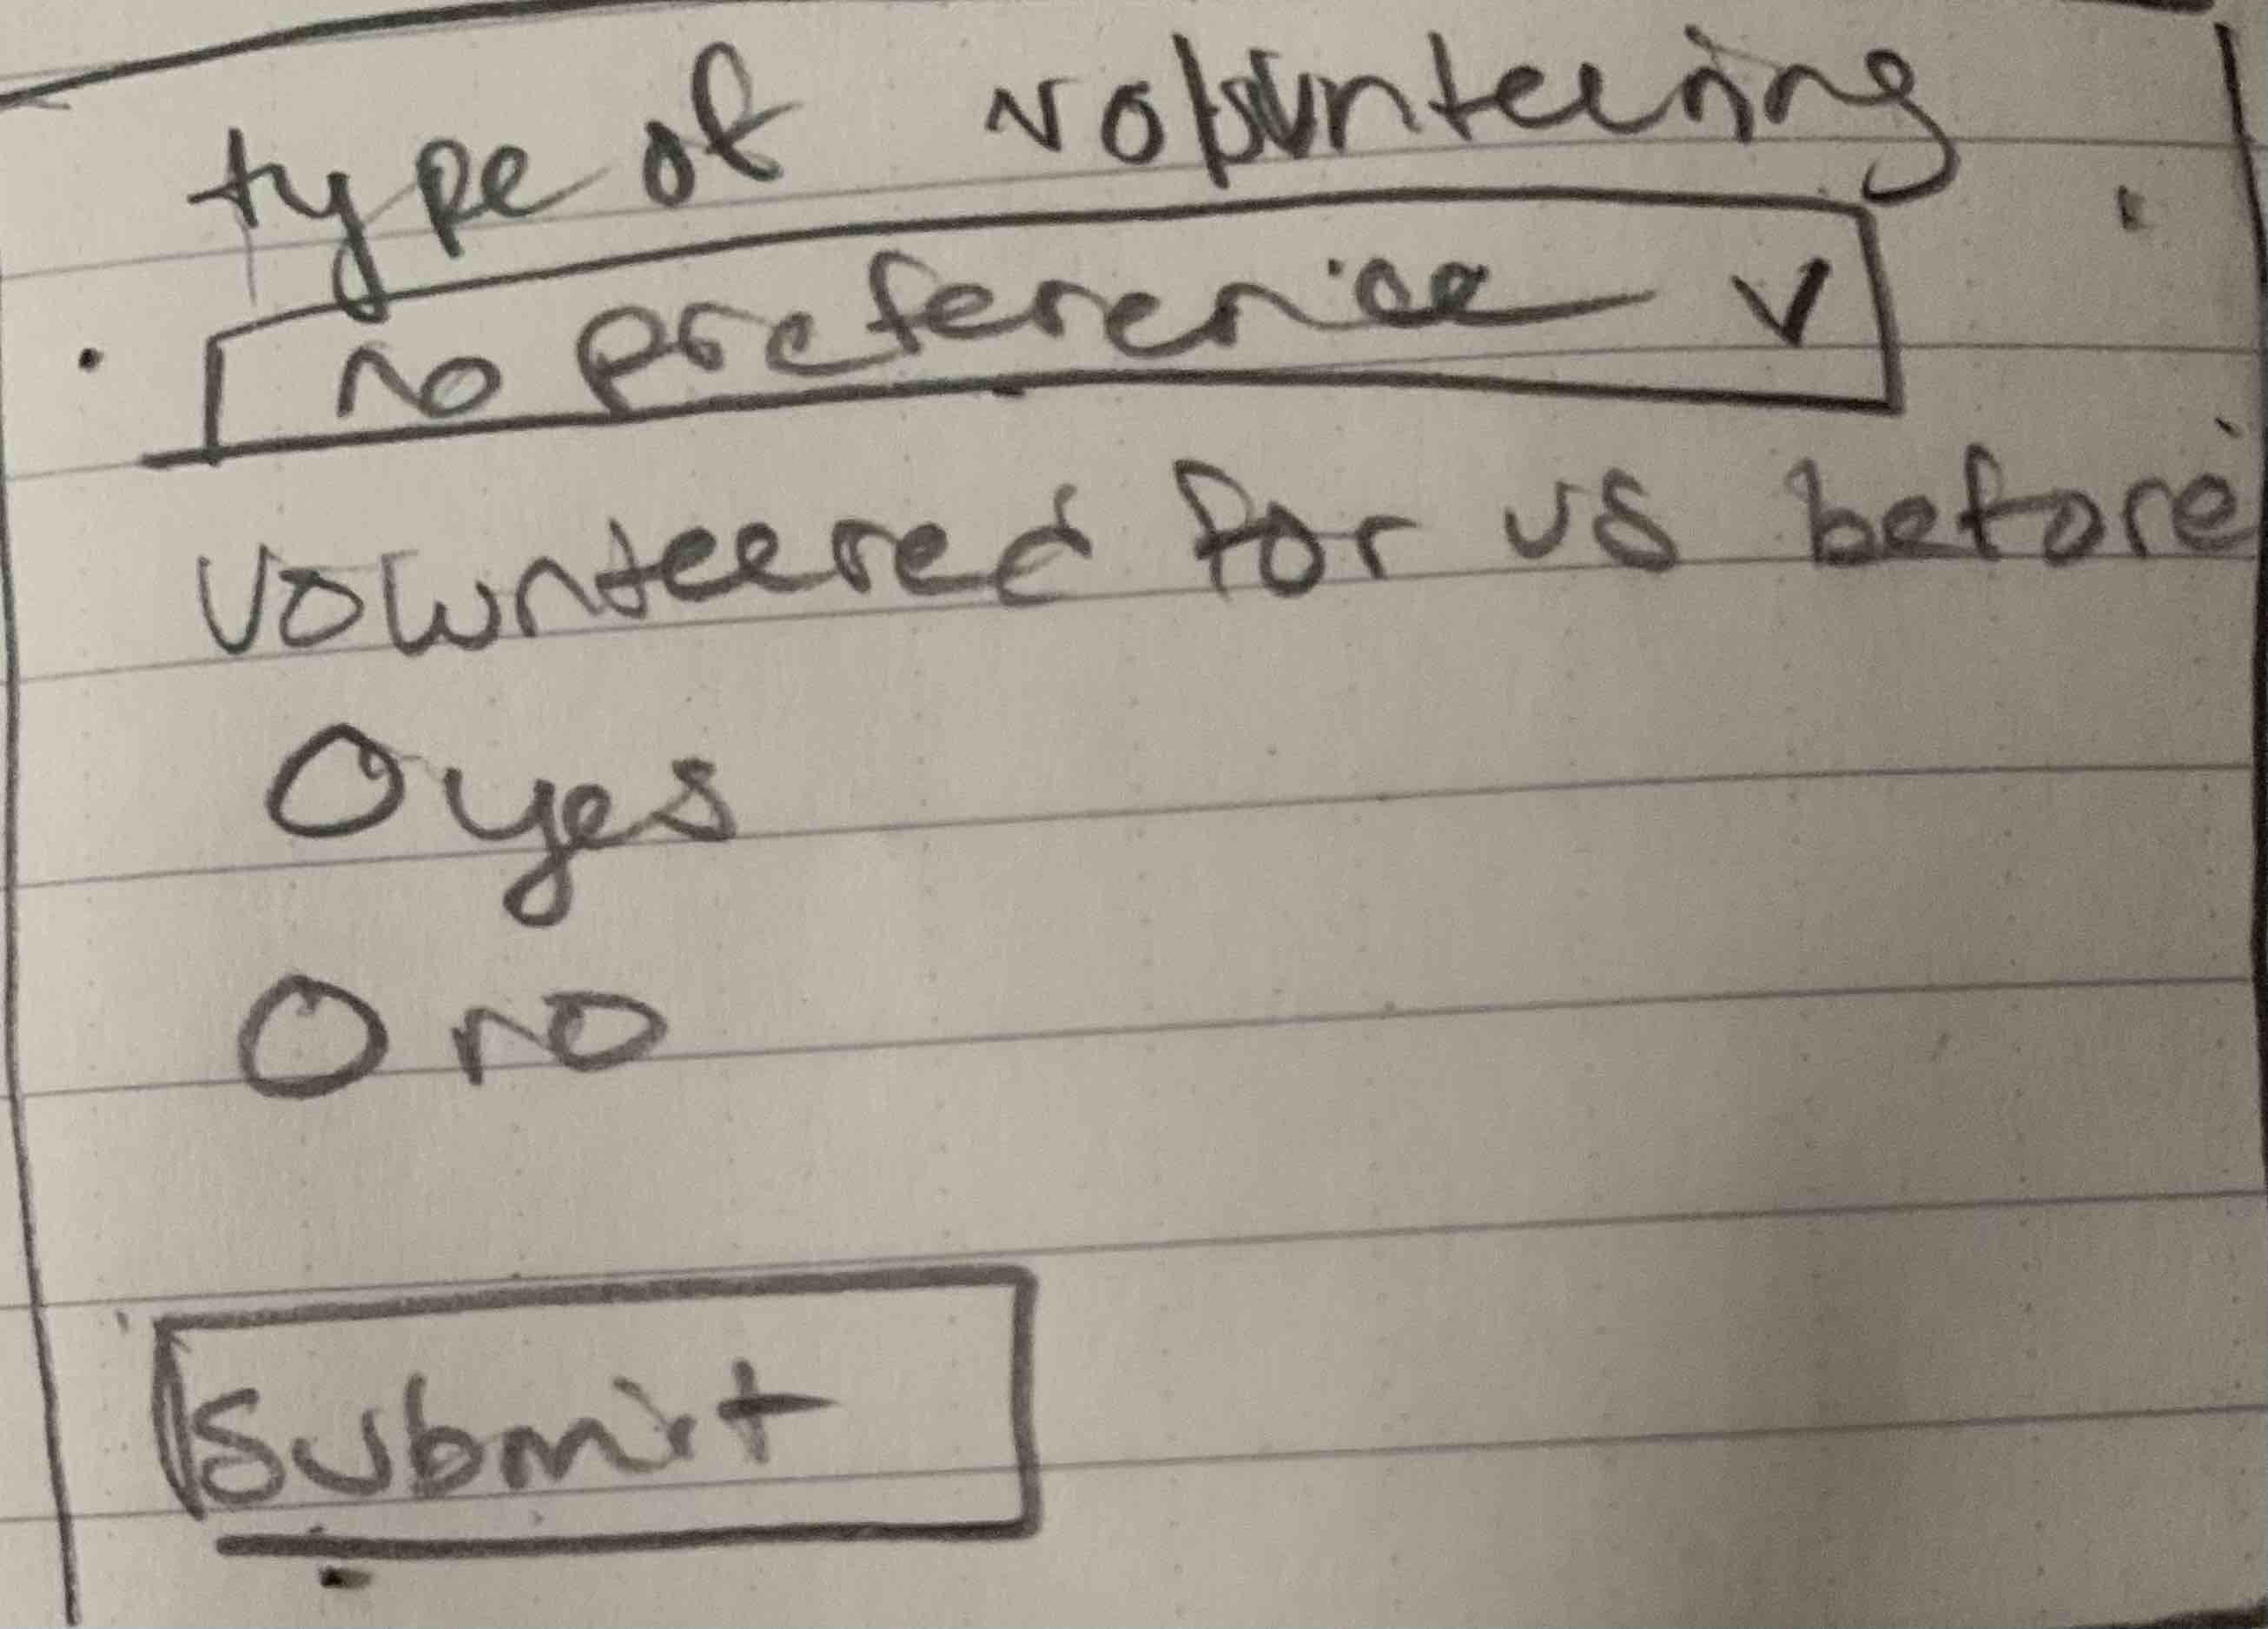 type of volunteering
no preference v
volunteered for us before
O yes
O no
submit